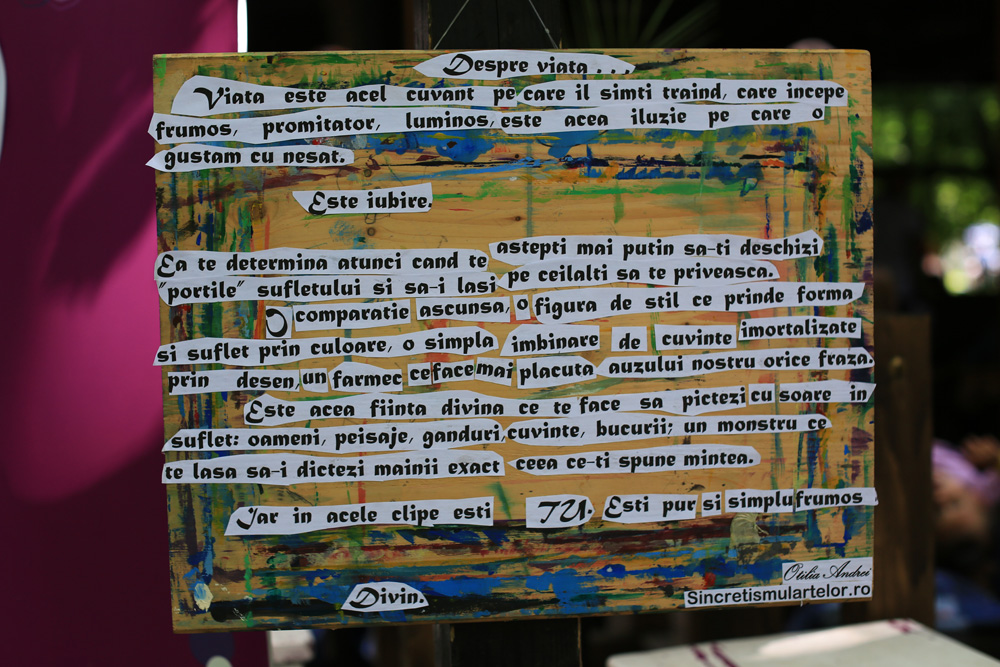 Despre viata . . .
Viata este acel cuvant pe care il simti traind, care incepe
frumos, promitator, luminos, este acea iluzie pe care o
gustam cu nesat.
Este iubire.
Ea te determina atunci cand te astepti mai putin sa-ti deschizi
"portile" sufletului si sa-i lasi pe ceilalti sa te priveasca.
O comparatie ascunsa, o figura de stil ce prinde forma
si suflet prin culoare, o simpla imbinare de cuvinte imortalizate
prin desen, un farmec ce face mai placuta auzului nostru orice fraza.
Este acea fiinta divina ce te face sa pictezi cu soare in
suflet: oameni, peisaje, ganduri, cuvinte, bucurii; un monstru ce
te lasa sa-i dictezi mainii exact ceea ce-ti spune mintea.
Iar in acele clipe esti TU. Esti pur si simplu frumos
Divin.
Otilia Andrei
Sincretismulartelor.ro